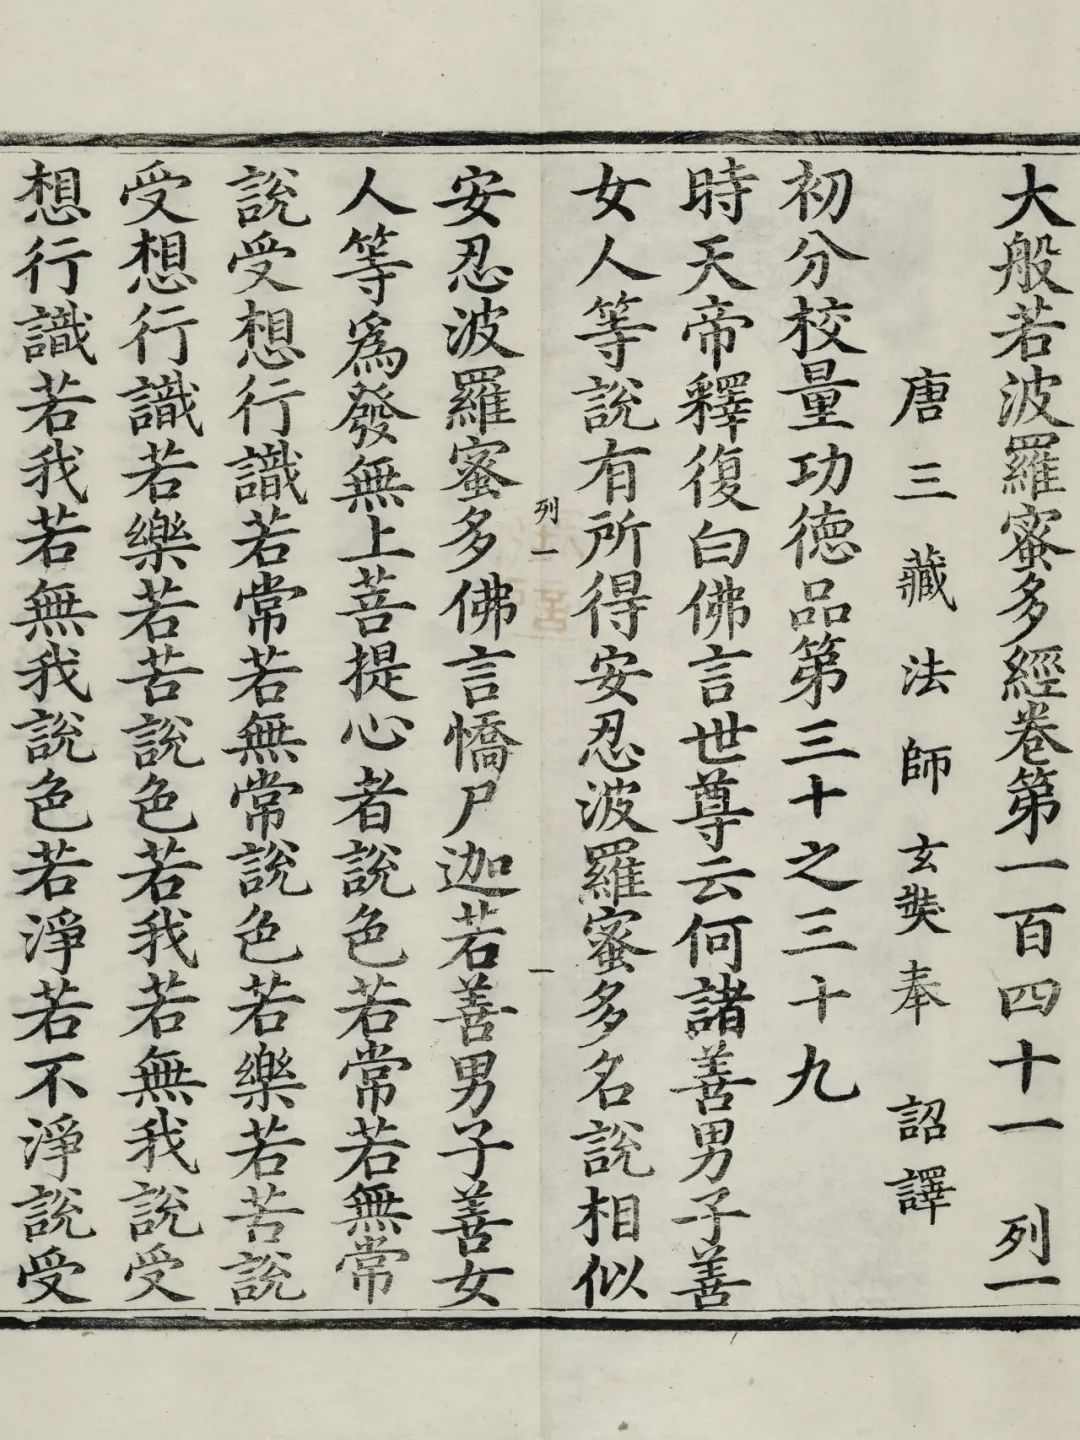 大般若波羅蜜多經卷第一百四十一 列一
唐三藏法師玄奘奉 詔譯
初分校量功德品第三十之三十九
時天帝釋復白佛言世尊云何諸善男子善
女人等說有所得安忍波羅蜜多名說相似
列一 一
安忍波羅蜜多佛言憍尸迦若善男子善女
人等為發無上菩提心者說色若常若無常
說受想行識若常若無常說色若樂若苦說
受想行識若樂若苦說色若我若無我說受
想行識若我若無我說色若淨若不淨說受